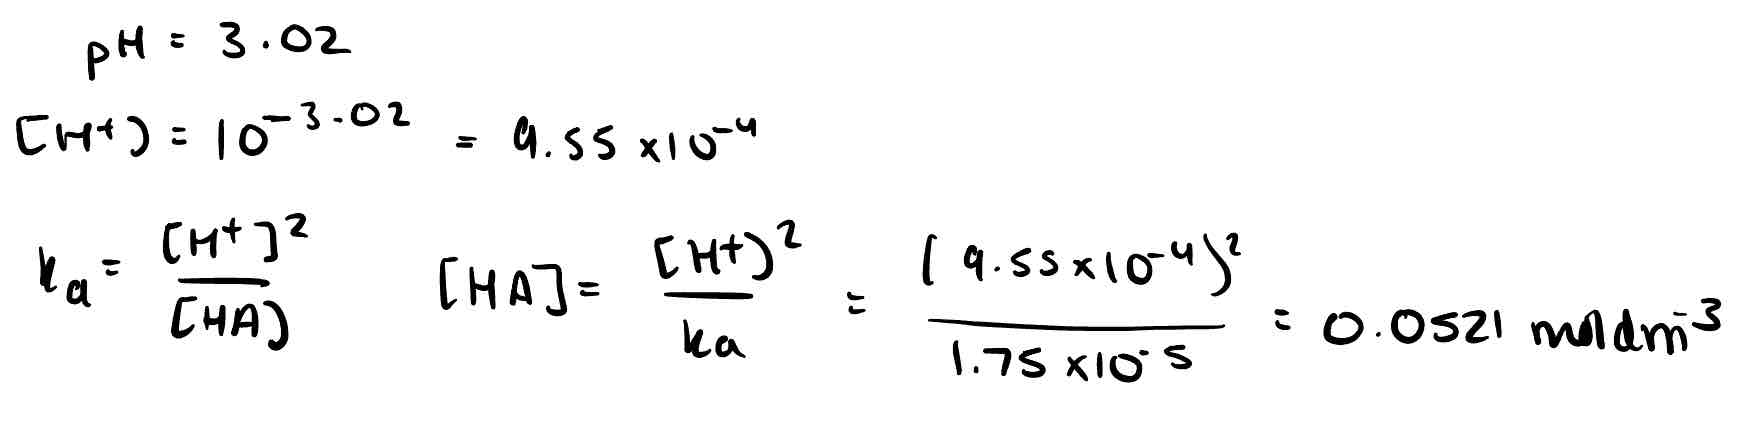 pH = 3.02
[H⁺) = 10⁻³·⁰² = 9.55 x10⁻⁴
ka = [H⁺]² / [HA) [HA] = [H⁺)² / ka = (9.55x10⁻⁴)² / 1.75 x10⁻⁵ = 0.0521 moldm⁻³